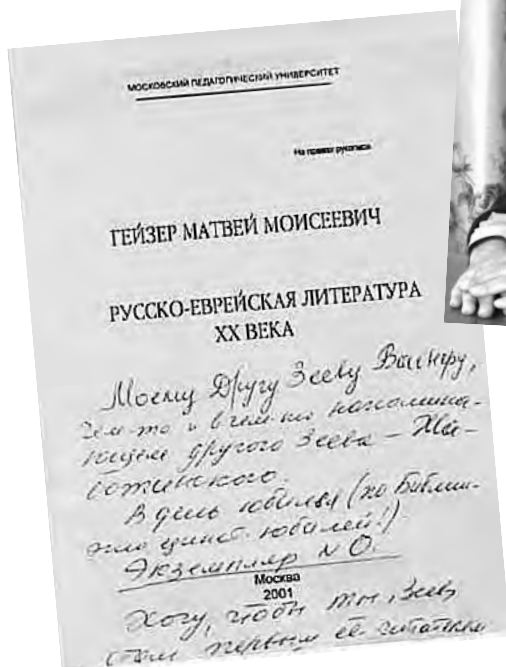 МОСКОВСКИЙ ПЕДАГОГИЧЕСКИЙ УНИВЕРСИТЕТ
На правах рукописи
ГЕЙЗЕР МАТВЕЙ МОИСЕЕВИЧ
РУССКО-ЕВРЕЙСКАЯ ЛИТЕРАТУРА
XX ВЕКА
Моему Другу Зееву Вайнеру,
чем-то и в чем-то напомина-
ющем другого Зеева – Жа-
ботинского.
В день юбилея (по Библии-
это юбилей!)
Экземпляр № 0.
Москва
2001
Хочу, чтобы ты, Зеев,
стал первым её читателем